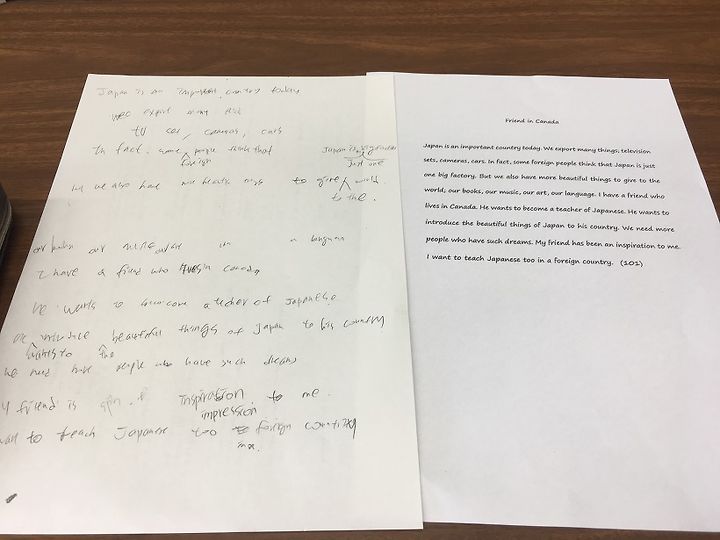 Japan is an important country today
export many
TV car, cameras, cars
In fact. some people think that Japan is
foreign just one
we also have to give world
to the.
our our
I have a friend who lives in Canada
He wants to become a teacher of Japanese
beautiful things of Japan to his country
wants to the
we need people who have such dreams
friend is inspiration to me.
impression
to teach Japanese too foreign country
Friend in Canada
Japan is an important country today. We export many things; television
sets, cameras, cars. In fact, some foreign people think that Japan is just
one big factory. But we also have more beautiful things to give to the
world; our books, our music, our art, our language. I have a friend who
lives in Canada. He wants to become a teacher of Japanese. He wants to
introduce the beautiful things of Japan to his country. We need more
people who have such dreams. My friend has been an inspiration to me.
I want to teach Japanese too in a foreign country. (101)